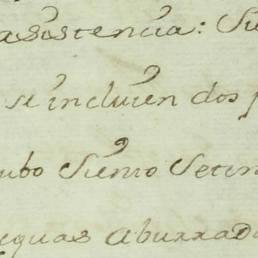 asistencia: Su
se incluien dos p
ubo Siento Seten
eguas aburrada